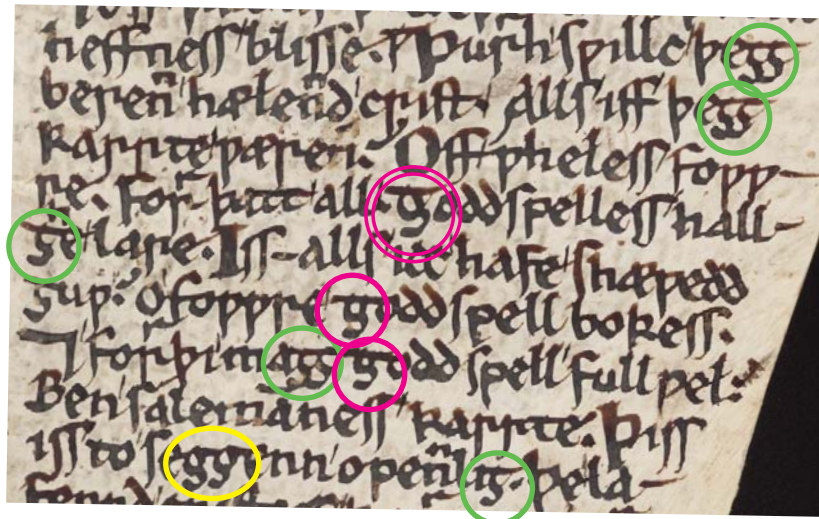 heffness blisse. ⁊ Þurrh swillc þeȝȝ
beren̄ hælen̄d crist. Alls iff þeȝȝ
karrte wæren̄. Off wheless foww-
re. Forr þatt all goddspelless hall-
ȝhe lare. Iss alls icc hafe shæwedd
ȝuw. O fowwre goddspell bokess.
⁊ forrþi maȝȝ goddspell full wel.
Ben salemaness karrte. Þiss
iss to seggenn open̄liȝ. þe la-